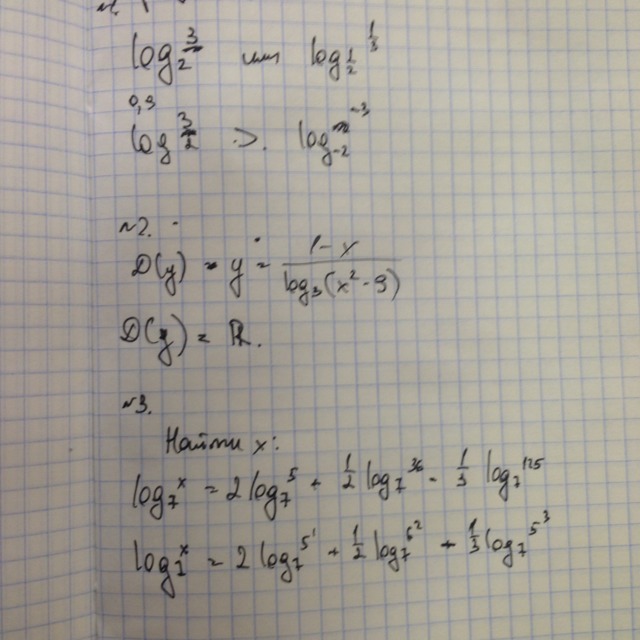 log₂ 3/2 или log_{1/2} 1/3
0,9
log 3/2 > log_{-2} ^{-3}
№2.
D(y) = y = (1-x)/(log₃(x²-9))
D(y) = R.
№3.
Найти x:
log₇ x = 2 log₇ 5 + 1/2 log₇ 36 - 1/3 log₇ 125
log₇ x = 2 log₇ 5¹ + 1/2 log₇ 6² + 1/3 log₇ 5³